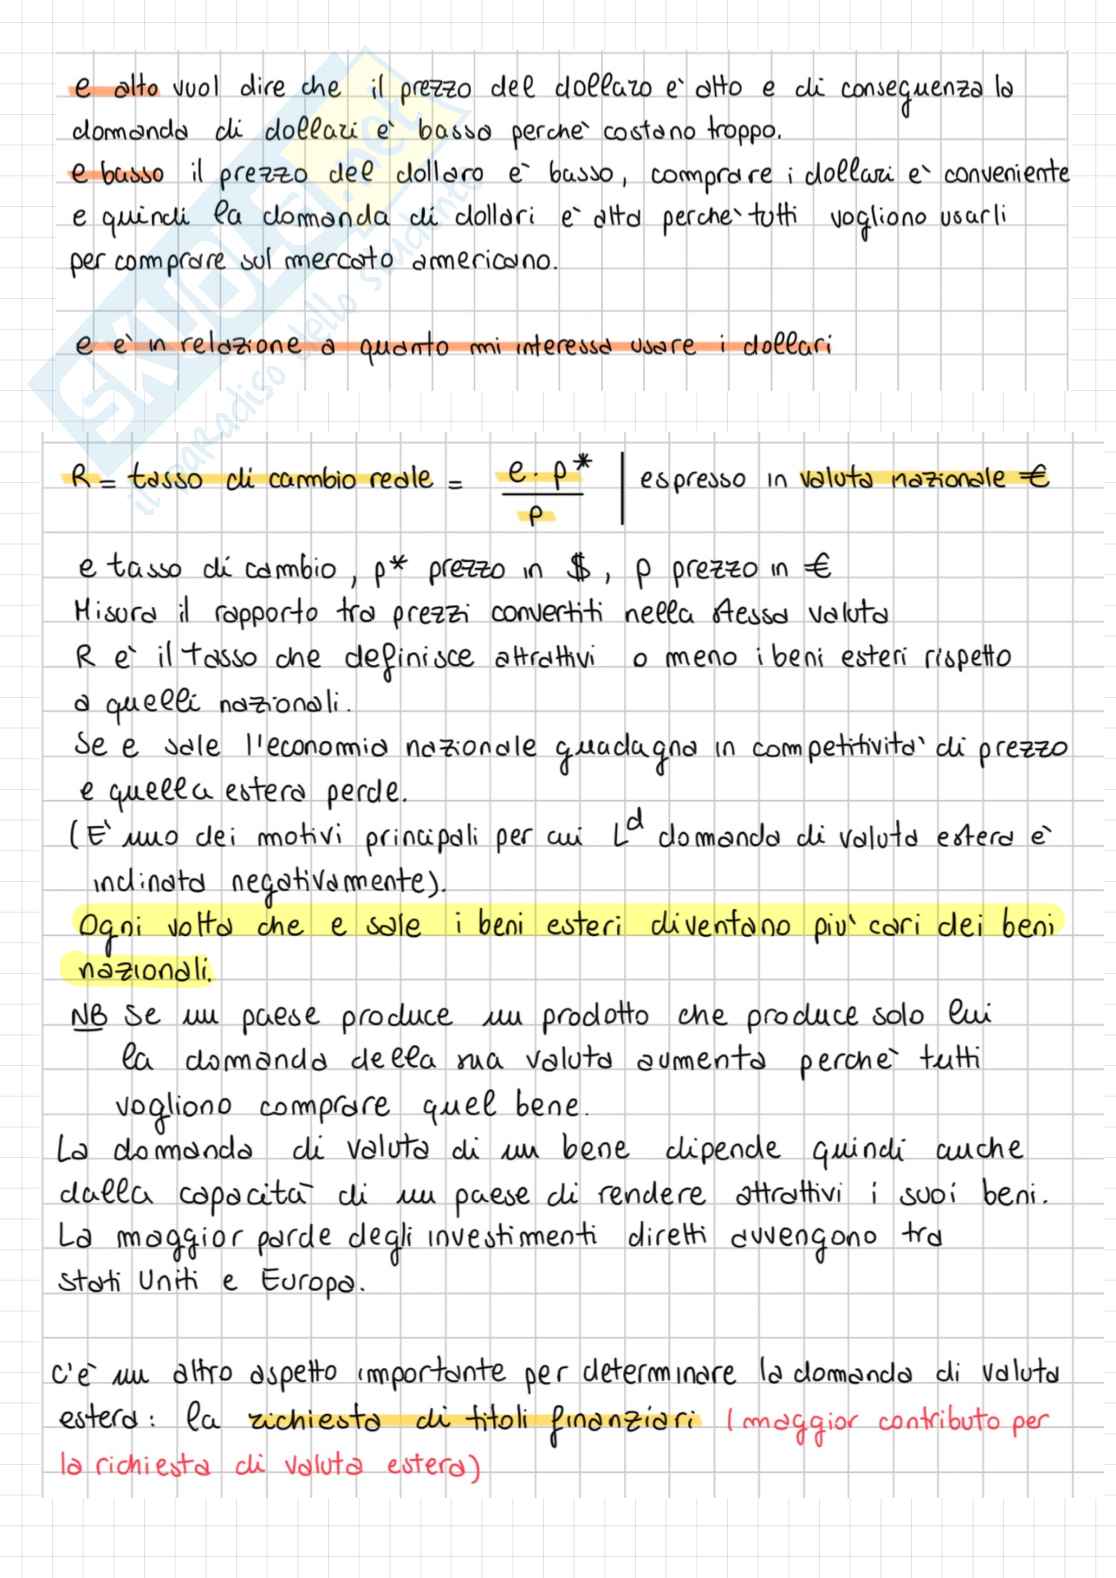 e alto vuol dire che il prezzo del dollaro è alto e di conseguenza la
domanda di dollari è bassa perchè costano troppo.
e basso il prezzo del dollaro è basso, comprare i dollari è conveniente
e quindi la domanda di dollari è alta perchè tutti vogliono usarli
per comprare sul mercato americano.
e è in relazione a quanto mi interessa usare i dollari
R = tasso di cambio reale = e · p* / p | espresso in valuta nazionale €
e tasso di cambio, p* prezzo in $, p prezzo in €
Misura il rapporto tra prezzi convertiti nella stessa valuta
R è il tasso che definisce attrattivi o meno i beni esteri rispetto
a quelli nazionali.
Se e sale l'economia nazionale guadagna in competitività di prezzo
e quella estera perde.
(È uno dei motivi principali per cui L^d domanda di valuta estera è
inclinata negativamente).
Ogni volta che e sale i beni esteri diventano più cari dei beni
nazionali.
NB Se un paese produce un prodotto che produce solo lui
la domanda della sua valuta aumenta perchè tutti
vogliono comprare quel bene.
La domanda di valuta di un bene dipende quindi anche
dalla capacità di un paese di rendere attrattivi i suoi beni.
La maggior parde degli investimenti diretti avvengono tra
Stati Uniti e Europa.
C'è un altro aspetto importante per determinare la domanda di valuta
estera: la richiesta di titoli finanziari (maggior contributo per
la richiesta di valuta estera)
SKUOLA.net
il paradiso dello studente